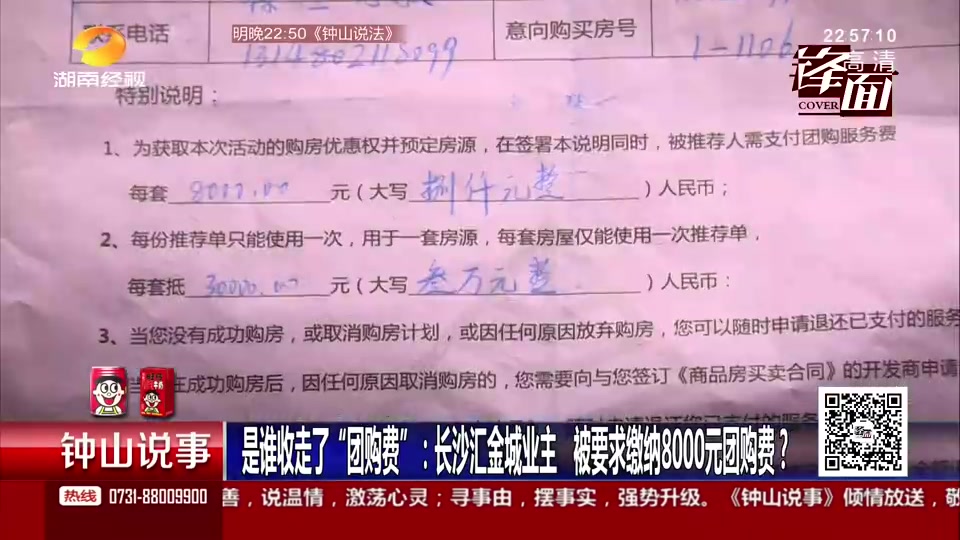 联系电话
明晚22:50《钟山说法》
意向购买房号
1-1106
22:57:10
高清
锋面
COVER
湖南经视
特别说明：
1、为获取本次活动的购房优惠权并预定房源，在签署本说明同时，被推荐人需支付团购服务费
每套 8000.00 元（大写 捌仟元整 ）人民币；
2、每份推荐单只能使用一次，用于一套房源，每套房屋仅能使用一次推荐单，
每套抵 30000.00 元（大写 叁万元整 ）人民币：
3、当您没有成功购房，或取消购房计划，或因任何原因放弃购房，您可以随时申请退还已支付的服务
成功购房后，因任何原因取消购房的，您需要向与您签订《商品房买卖合同》的开发商申请
钟山说事
是谁收走了“团购费”：长沙汇金城业主 被要求缴纳8000元团购费？
热线 0731-88009900
善，说温情，激荡心灵；寻事由，摆事实，强势升级。《钟山说事》倾情放送，敬